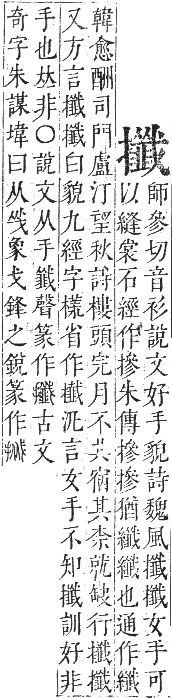 攕
師參切音衫說文好手貌詩魏風攕攕女手可
以縫裳石經作摻朱傳摻摻猶纖纖也通作纖
韓愈酬司門盧汀望秋詩樓頭完月不共宿其柰就缺行攕攕
又方言攕攕白貌九經字樣省作攕汎言女手不知攕訓好非
手也𠀤非○說文从手韱聲篆作古文
奇字朱謀㙔曰从㦰象戈鋒之銳篆作